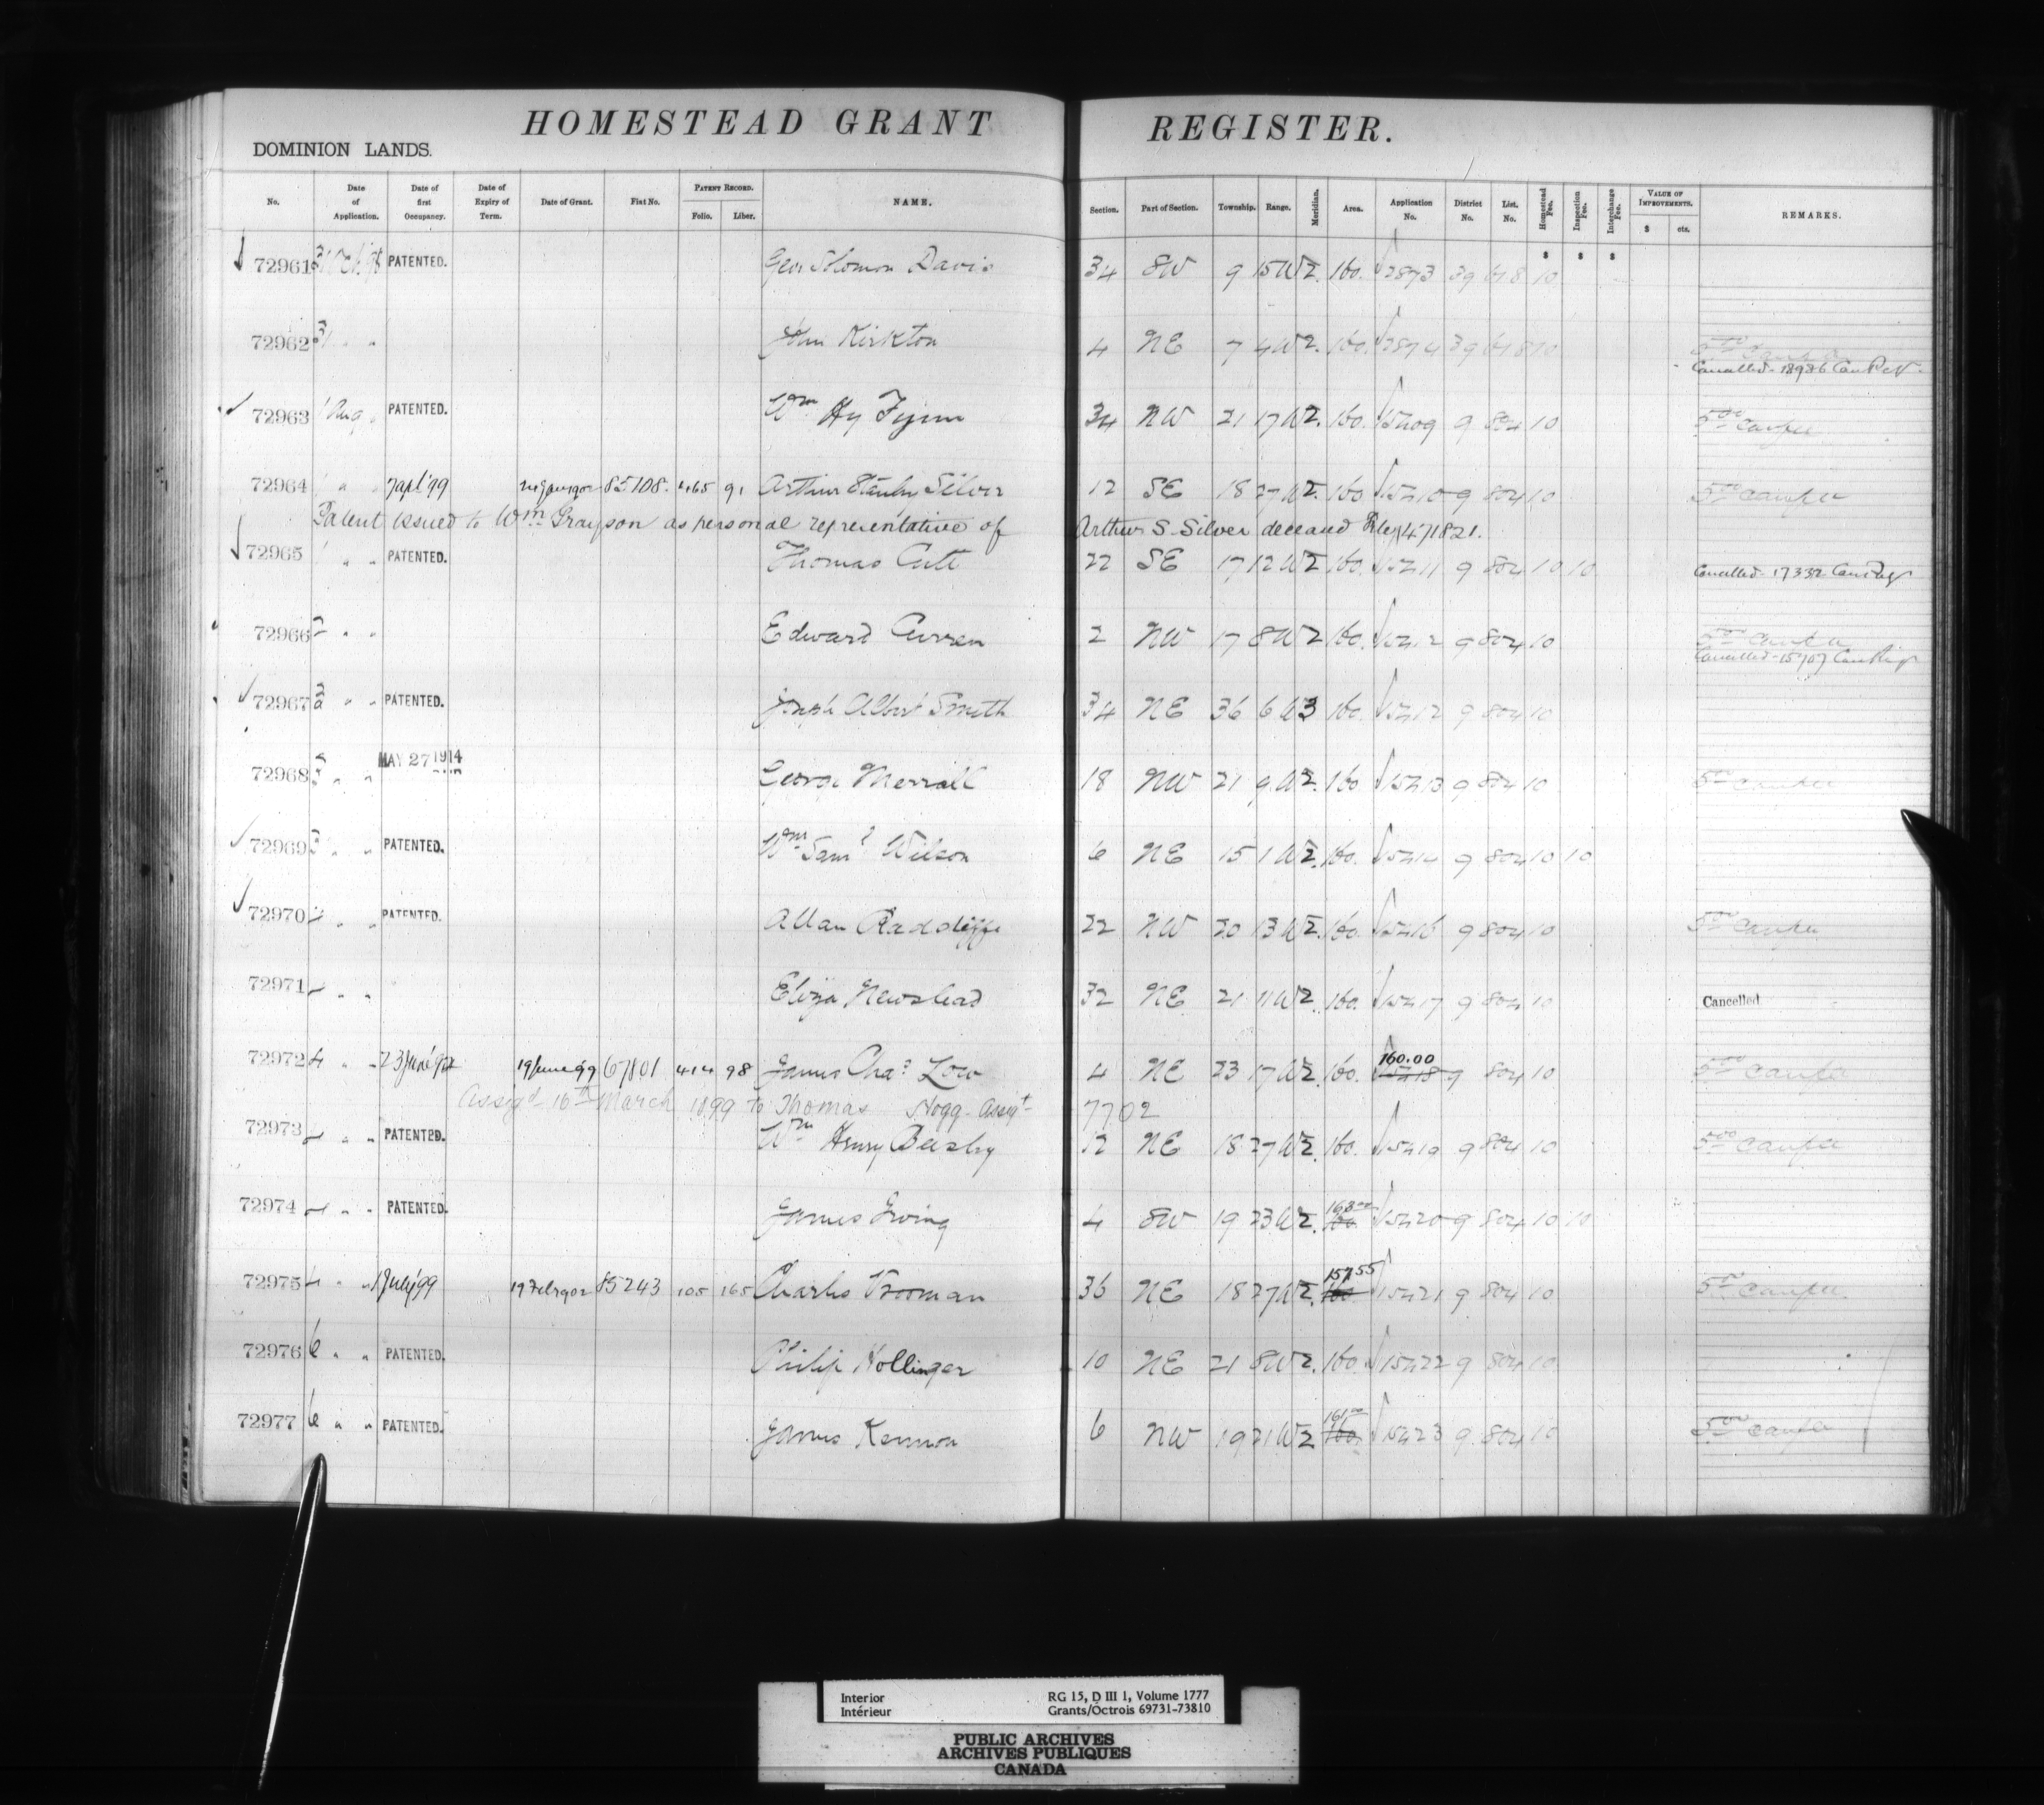 HOMESTEAD GRANT REGISTER.
DOMINION LANDS.
No. Date of Application. Date of first Occupancy. Date of Expiry of Term. Date of Grant. Fiat No. PATENT RECORD. Folio. Liber. NAME. Section. Part of Section. Township. Range. Meridian. Area. Application No. District No. List. No. Homestead Fee. Inspection Fee. Interchange Fee. VALUE OF IMPROVEMENTS. $ cts. REMARKS.
$ $ $
72961 PATENTED. Geo Solomon Davis 34 SW 9 15 W2. 160. 2873 39 618 10
72962 31 " " John Kirkton 4 NE 7 4 W2. 160. 2874 39 618 10
Cancelled
72963 1 Aug " PATENTED. Wm Hy 34 NW 21 17 W2. 160. 15209 9 804 10 5.00
72964 " " 7 Apl '99 85108 465 91 Arthur Stanley Silver 12 SE 18 27 W2. 160 15210 9 804 10 5.00
Patent issued to Wm Grayson as personal representative of Arthur S. Silver deceased 471821.
72965 " " PATENTED. Thomas 22 SE 17 12 W2 160. 15211 9 804 10 10
Cancelled 17332
72966 2 " " Edward Curren 2 NW 17 8 W2 160. 15212 9 804 10
Cancelled
72967 2 " " PATENTED. Joseph Albert Smith 34 NE 36 6 W3 160. 15212 9 804 10
72968 3 " " MAY 27 1914 George Merrall 18 NW 21 9 W2. 160 15213 9 804 10 5.00
72969 3 " " PATENTED. Wm Saml Wilson 6 NE 15 1 W2. 160. 15214 9 804 10 10
72970 4 " " PATENTED. Allan Radcliffe 22 NW 20 13 W2. 160. 15216 9 804 10 5.00
72971 " " Eliza Newslead 32 NE 21 11 W2. 160. 15217 9 804 10 Cancelled
72972 4 " " 19 June 99 67801 414 98 James Chas Low 4 NE 23 17 W2. 160. 160.00 15218 9 804 10 5.00
Assigd 16th March 1899 to Thomas Hogg Assigt 7702
72973 " " PATENTED. Wm Henry Beesley 12 NE 18 27 W2. 160. 15219 9 804 10 5.00
72974 4 " " PATENTED. James Irving 4 SW 19 23 W2. 160 15220 9 804 10 10
72975 4 " " 1 July '99 19 Feb 1902 85243 105 165 Charles Vrooman 36 NE 18 27 W2. 157.55 160 15221 9 804 10 5.00
72976 6 " " PATENTED. Philip Hollinger 10 NE 21 8 W2. 160. 15222 9 804 10
72977 6 " " PATENTED. James Kennon 6 NW 19 21 W2 161.00 160. 15223 9 804 10 5.00
Interior RG 15, D III 1, Volume 1777
Intérieur Grants/Octrois 69731-73810
PUBLIC ARCHIVES
ARCHIVES PUBLIQUES
CANADA